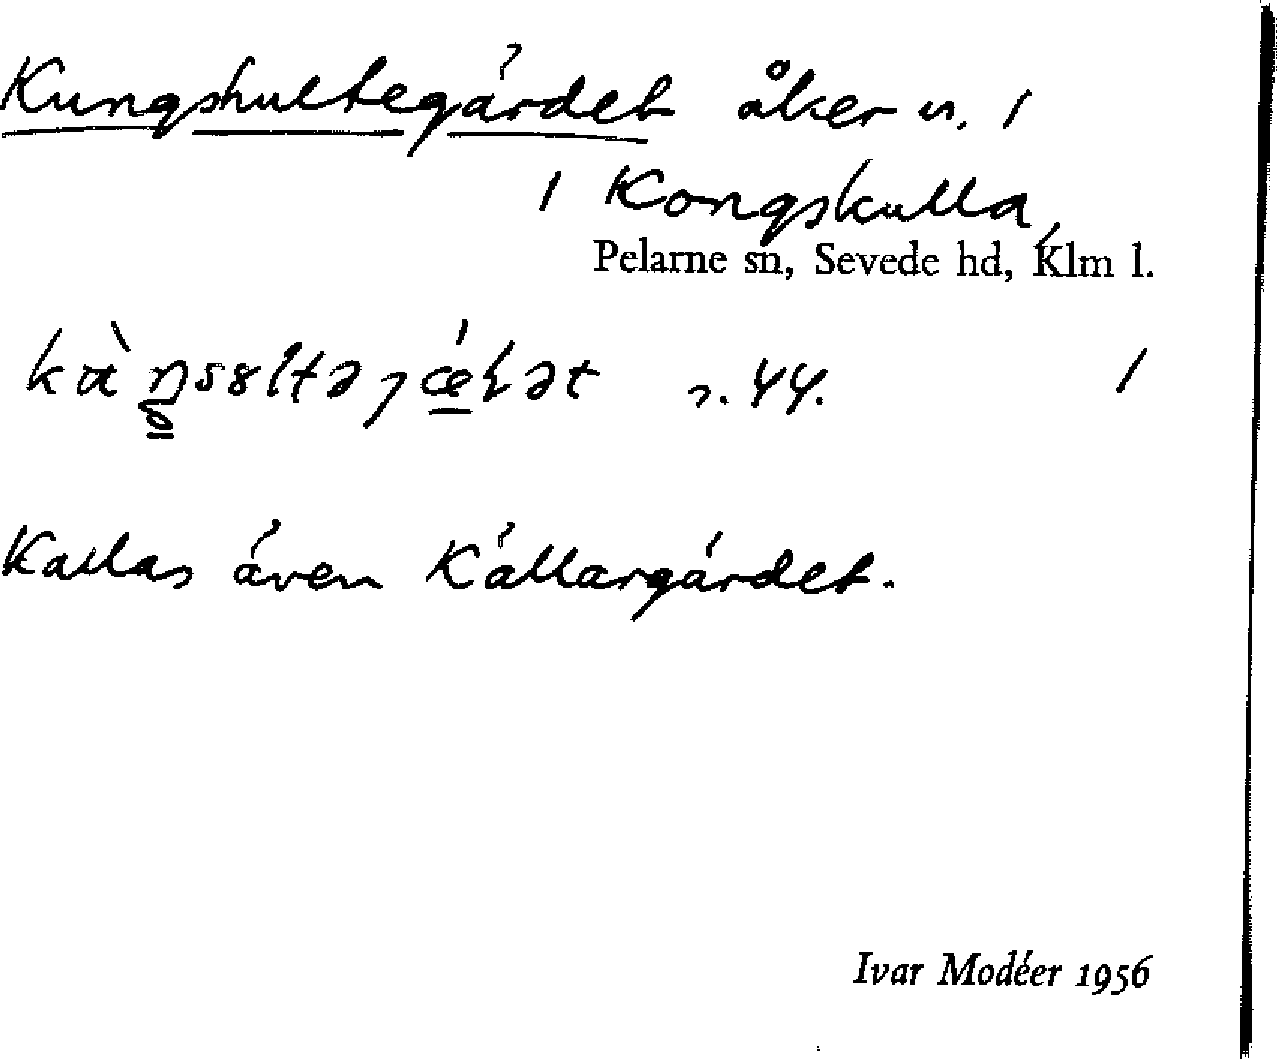 Kungshultegärdet åker n. 1
1 Kongskulla,
Pelarne sn, Sevede hd, Klm l.
44. 1
Kallas även Källargärdet.
Ivar Modéer 1956